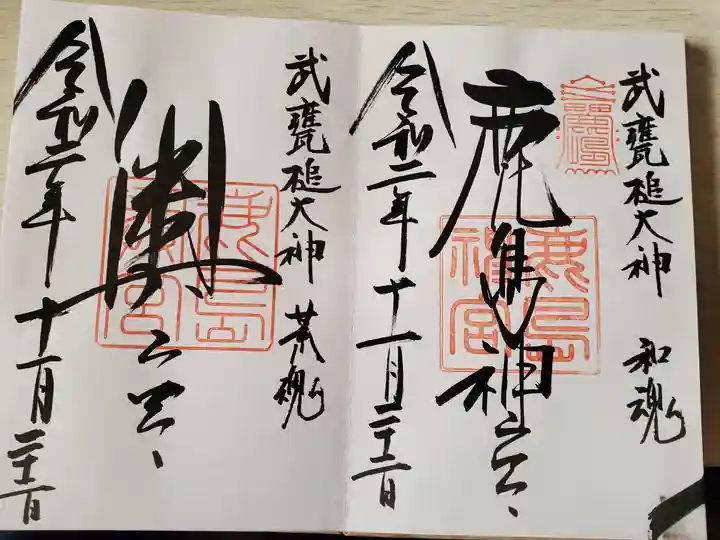 武甕槌大神 和魂
鹿島神宮
令和二年十一月二十二日
鹿島神宮
武甕槌大神 荒魂
奥宮
令和二年十一月二十二日
鹿島奥宮